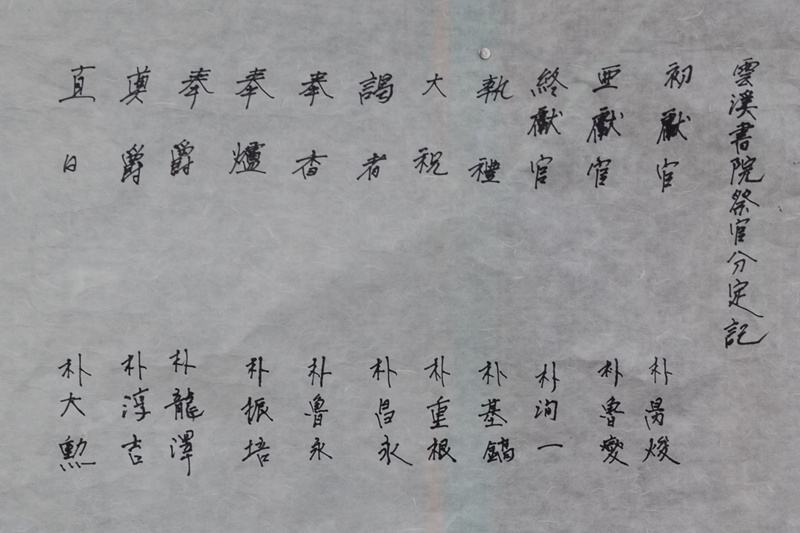 雲溪書院祭官分定記
初獻官 朴昺焌
亞獻官 朴魯燮
終獻官 朴洵一
執禮 朴基鎬
大祝 朴重根
謁者 朴昌永
奉香 朴魯永
奉爐 朴振培
奉爵 朴龍澤
奠爵 朴淳吉
直日 朴大勳